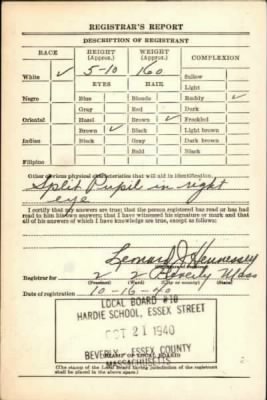 REGISTRAR'S REPORT
DESCRIPTION OF REGISTRANT
RACE HEIGHT (Approx.) WEIGHT (Approx.) COMPLEXION
White ✓ 5-10 160 Sallow
EYES HAIR Light
Negro Blue Blonde Ruddy ✓
Gray Red Dark
Oriental Hazel Brown ✓ Freckled
Brown ✓ Black Light brown
Indian Black Gray Dark brown
Bald Black
Filipino
Other obvious physical characteristics that will aid in identification
Split Pupil in right
eye
I certify that my answers are true; that the person registered has read or has had
read to him his own answers; that I have witnessed his signature or mark and that
all of his answers of which I have knowledge are true, except as follows:
Leonard J. Hennessey
Registrar for 2 2 Beverly Mass
(Precinct) (Ward) (City or county) (State)
Date of registration 10-16-40
LOCAL BOARD #10
HARDIE SCHOOL, ESSEX STREET
OCT 21 1940
BEVERLY, ESSEX COUNTY
MASSACHUSETTS
(STAMP OF LOCAL BOARD)
(The stamp of the Local Board having jurisdiction of the registrant
shall be placed in the above space.)